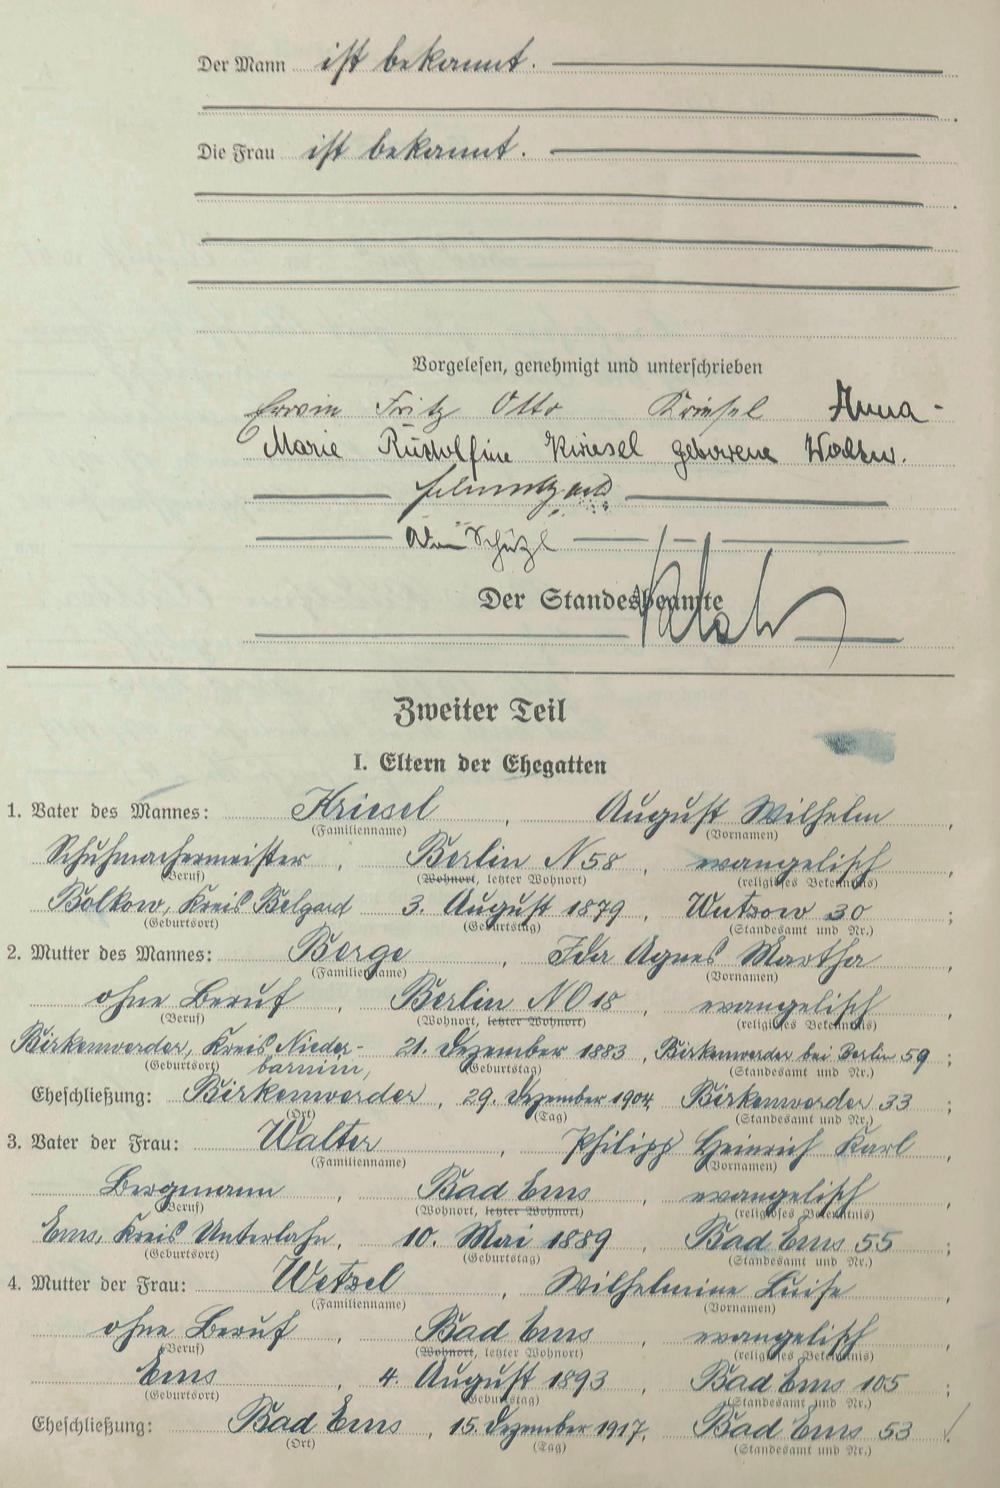 Der Mann ist bekannt.
Die Frau ist bekannt.
Vorgelesen, genehmigt und unterschrieben
Erwin Fritz Otto Kriesel Anna-
Marie Rudolfine Kriesel geborene Walter.
Der Standesbeamte
Zweiter Teil
I. Eltern der Ehegatten
1. Vater des Mannes: Kriesel, August Wilhelm,
(Familienname) (Vornamen)
Schuhmachermeister, Berlin N 58, evangelisch
(Beruf) (Wohnort, letzter Wohnort) (religiöses Bekenntnis)
Bolkow, Kreis Belgard 3. August 1879, Wutzow 30;
(Geburtsort) (Geburtstag) (Standesamt und Nr.)
2. Mutter des Mannes: Berge, Ida Agnes Martha,
(Familienname) (Vornamen)
ohne Beruf, Berlin NO 18, evangelisch,
(Beruf) (Wohnort, letzter Wohnort) (religiöses Bekenntnis)
Birkenwerder, Kreis Nieder- 21. Dezember 1883, Birkenwerder bei Berlin 59;
barnim,
(Geburtsort) (Geburtstag) (Standesamt und Nr.)
Eheschließung: Birkenwerder, 29. Dezember 1904, Birkenwerder 33;
(Ort) (Tag) (Standesamt und Nr.)
3. Vater der Frau: Walter, Philipp Heinrich Karl,
(Familienname) (Vornamen)
Bergmann, Bad Ems, evangelisch,
(Beruf) (Wohnort, letzter Wohnort) (religiöses Bekenntnis)
Ems, Kreis Unterlahn, 10. Mai 1889, Bad Ems 55;
(Geburtsort) (Geburtstag) (Standesamt und Nr.)
4. Mutter der Frau: Wetzel, Wilhelmine Luise,
(Familienname) (Vornamen)
ohne Beruf, Bad Ems, evangelisch,
(Beruf) (Wohnort, letzter Wohnort) (religiöses Bekenntnis)
Ems, 4. August 1893, Bad Ems 105;
(Geburtsort) (Geburtstag) (Standesamt und Nr.)
Eheschließung: Bad Ems, 15. Dezember 1917, Bad Ems 53.
(Ort) (Tag) (Standesamt und Nr.)